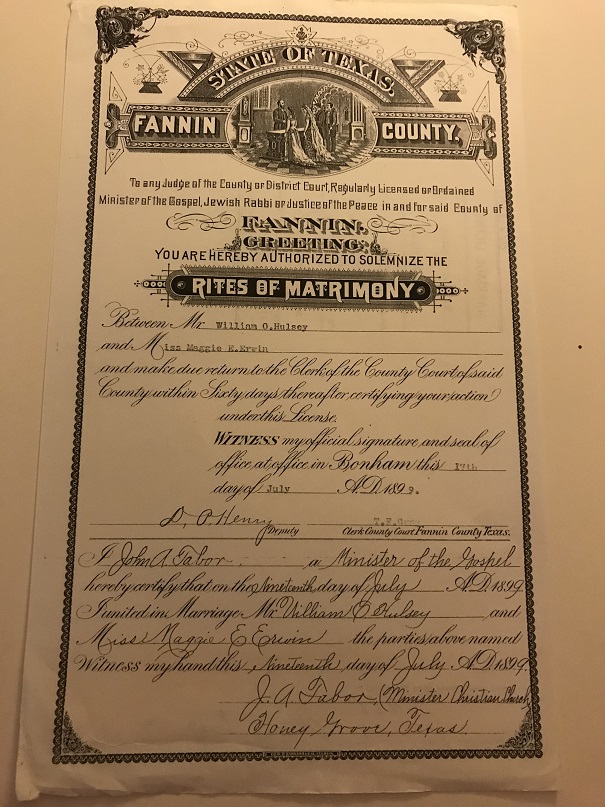 STATE OF TEXAS,
FANNIN COUNTY.
To any Judge of the County or District Court, Regularly Licensed or Ordained
Minister of the Gospel, Jewish Rabbi or Justice of the Peace in and for said County of
FANNIN,
GREETING:
YOU ARE HEREBY AUTHORIZED TO SOLEMNIZE THE
RITES OF MATRIMONY
Between Mr William O.Hulsey
and Miss Maggie E.Erwin
and make due return to the Clerk of the County Court of said
County within Sixty days thereafter, certifying your action
under this License.
WITNESS my official signature and seal of
office at office in Bonham this 17th
day of July A.D. 1899.
D. P. Henry Deputy T.F.
Clerk County Court, Fannin County, Texas.
I John A Tabor a Minister of the Gospel
hereby certify that on the Nineteenth day of July A.D. 1899
I united in Marriage Mr. William O Hulsey and
Miss Maggie E Erwin the parties above named
Witness my hand this Nineteenth day of July A.D. 1899.
J. A. Tabor, (Minister Christian Church
Honey Grove, Texas.